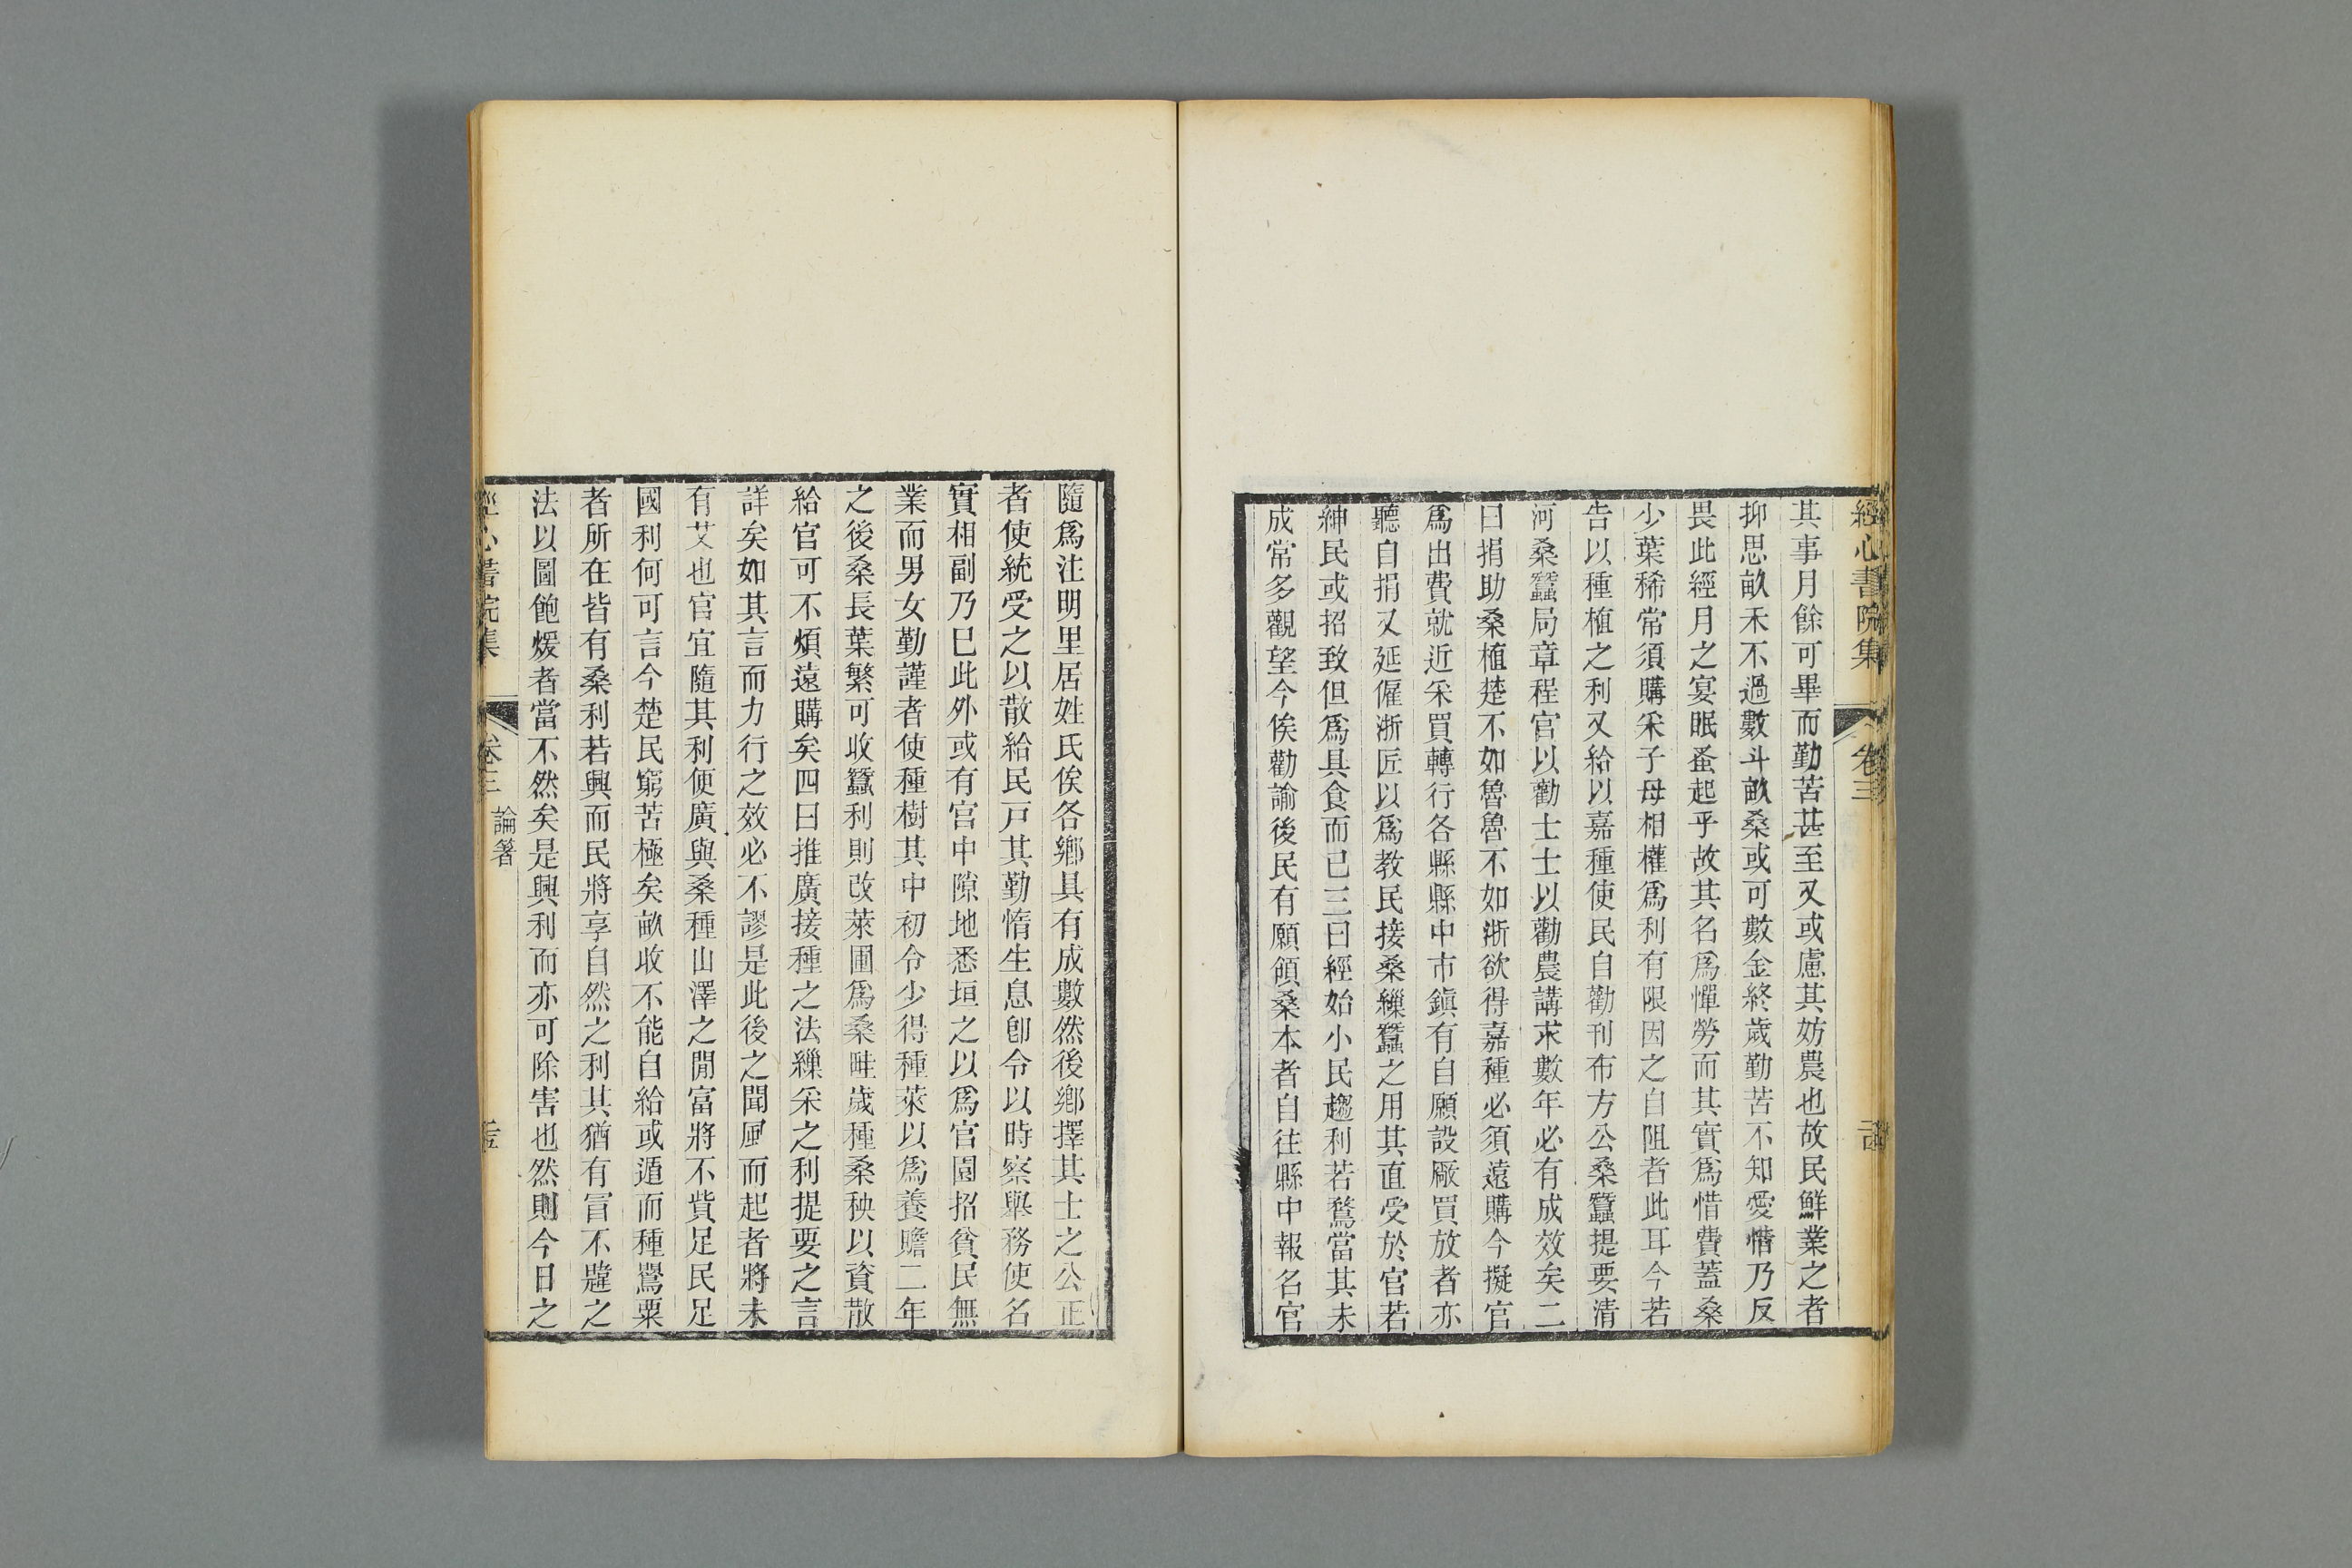 經心書院集 卷三 二古
其事月餘可畢而勤苦甚至又或慮其妨農也故民鮮業之者
抑思畝禾不過數斗畝桑或可數金終歲勤苦不知愛惜乃反
畏此經月之宴眠蚤起乎故其名爲憚勞而其實爲惜費蓋桑
少葉稀常須購采子母相權爲利有限因之自阻者此耳今若
告以種植之利又給以嘉種使民自勸刊布方公桑蠶提要清
河桑蠶局章程官以勸士士以勸農講求數年必有成效矣二
曰捐助桑植楚不如魯魯不如浙欲得嘉種必須遠購今擬官
爲出費就近采買轉行各縣縣中市鎭有自願設厰買放者亦
聽自捐又延僱浙匠以爲教民接桑繅蠶之用其直受於官若
紳民或招致但爲具食而已三曰經始小民趨利若鶩當其未
成常多觀望今俟勸諭後民有願領桑本者自往縣中報名官
隨爲注明里居姓氏俟各鄉具有成數然後鄉擇其士之公正
者使統受之以散給民戸其勤惰生息卽令以時察舉務使名
實相副乃已此外或有官中隙地悉垣之以爲官園招貧民無
業而男女勤謹者使種樹其中初令少得種菜以爲養贍二年
之後桑長葉繁可收蠶利則改菜圃爲桑畦歲種桑秧以資散
給官可不煩遠購矣四曰推廣接種之法繅采之利提要之言
詳矣如其言而力行之效必不謬是此後之聞風而起者將未
有艾也官宜隨其利便廣與桑種山澤之閒富將不貲足民足
國利何可言今楚民窮苦極矣畝收不能自給或遁而種罌粟
者所在皆有桑利若興而民將享自然之利其猶有冒不韙之
法以圖飽煖者當不然矣是興利而亦可除害也然則今日之
經心書院集 卷三 論著